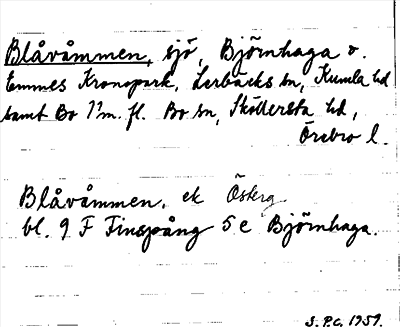 Blåvåmmen, sjö, Björnhaga o.
Emmes Kronopark, Lerbäcks sn, Kumla hd
samt Bo 1¹ m. fl. Bo sn, Sköllersta hd,
Örebro l.
Blåvåmmen, ek Österg
bl. 9 F Finspång 5 e Björnhaga.
S.P.C. 1959.